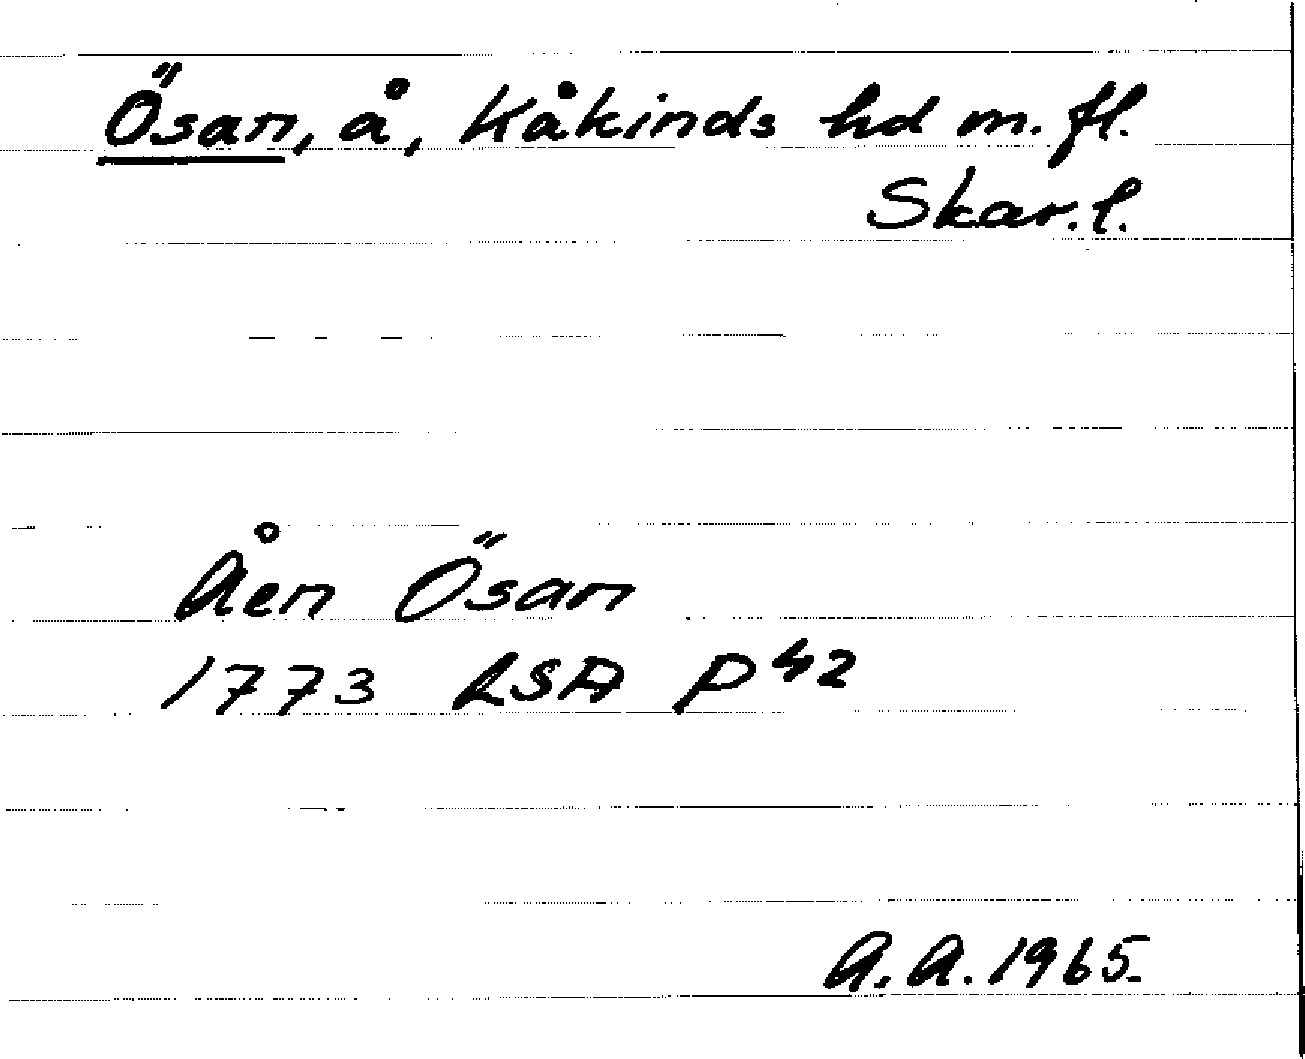 Ösan, å, Kåkinds hd m. fl.
Skar. l.
Åen Ösan
1773 LSA P 42
A. A. 1965.